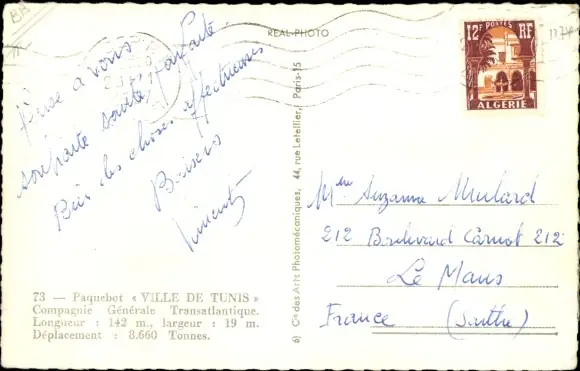 BA
REAL-PHOTO
12F POSTES RF
ALGÉRIE
Pense à vous
souhaite santé parfaite
Bien des choses affectueuses
Baisers
Vincent
6) Cie des Arts Photomécaniques, 44, rue Letellier, Paris-15
Mme Suzanne Mulard
212 Boulevard Carnot 212
Le Mans
France (Sarthe)
73 — Paquebot « VILLE DE TUNIS »
Compagnie Générale Transatlantique.
Longueur : 142 m., largeur : 19 m.
Déplacement : 8.660 Tonnes.